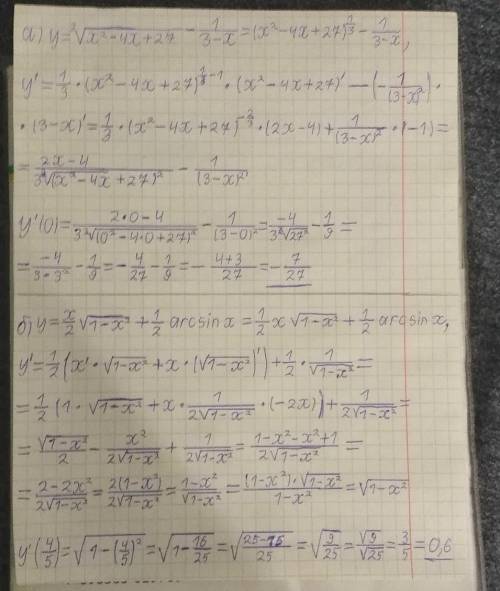 а) y = ³√(x²-4x+27) - 1/(3-x) = (x²-4x+27)^(1/3) - 1/(3-x),
y' = 1/3 · (x²-4x+27)^(1/3-1) · (x²-4x+27)' - (-1/(3-x)²) ·
· (3-x)' = 1/3 · (x²-4x+27)^(-2/3) · (2x-4) + 1/(3-x)² · (-1) =
= (2x-4)/(3 ³√(x²-4x+27)²) - 1/(3-x)²,
y'(0) = (2·0-4)/(3 ³√(0²-4·0+27)²) - 1/(3-0)² = -4/(3 ³√27²) - 1/9 =
= -4/(3·3²) - 1/9 = -4/27 - 1/9 = -(4+3)/27 = -7/27
б) y = x/2 √(1-x²) + 1/2 arcsin x = 1/2 x √(1-x²) + 1/2 arcsin x,
y' = 1/2 (x' · √(1-x²) + x · (√(1-x²))') + 1/2 · 1/√(1-x²) =
= 1/2 (1 · √(1-x²) + x · 1/(2√(1-x²)) · (-2x)) + 1/(2√(1-x²)) =
= √(1-x²)/2 - x²/(2√(1-x²)) + 1/(2√(1-x²)) = (1-x²-x²+1)/(2√(1-x²)) =
= (2-2x²)/(2√(1-x²)) = 2(1-x²)/(2√(1-x²)) = (1-x²)/√(1-x²) = ((1-x²)·√(1-x²))/(1-x²) = √(1-x²)
y'(4/5) = √(1-(4/5)²) = √(1-16/25) = √((25-16)/25) = √(9/25) = √9/√25 = 3/5 = 0,6